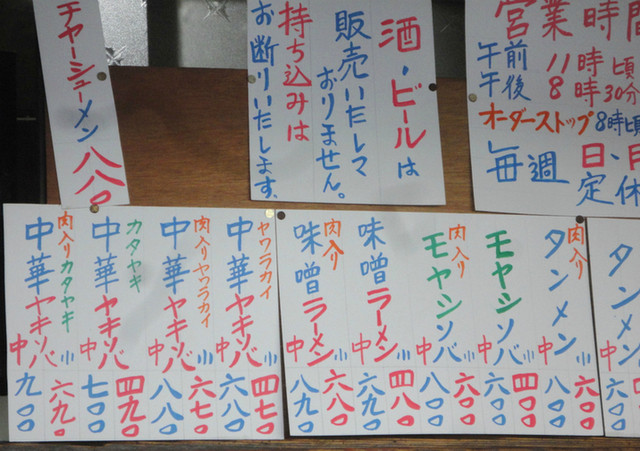 営業時間
午前 11時頃
午後 8時30分
オーダーストップ 8時頃
毎週 日、月
定休
酒・ビールは
販売いたして
おりません。
持ち込みは
お断りいたします.
チャーシューメン 八八〇
タンメン
中 六〇〇
肉入り
タンメン
小 六〇〇
中 八〇〇
モヤシソバ
小 四〇〇
中 六〇〇
肉入り
モヤシソバ
小 六〇〇
中 八〇〇
味噌ラーメン
小 四八〇
中 六九〇
肉入り
味噌ラーメン
小 六八〇
中 八九〇
ヤワラカイ
中華ヤキソバ
小 四七〇
中 六八〇
肉入りヤワラカイ
中華ヤキソバ
小 六七〇
中 八八〇
カタヤキ
中華ヤキソバ
小 四九〇
中 七〇〇
肉入りカタヤキ
中華ヤキソバ
小 六九〇
中 九〇〇